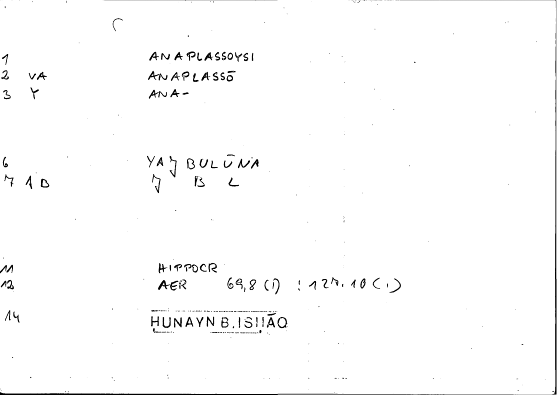 1 ANAPLASSOYSI
2 VA ANAPLASSŌ
3 Y ANA-
6 YAJBULŪNA
7 1 D J B L
11 HIPPOCR
12 AER 69,8 (1) : 127.10 (1)
14 HUNAYN B. ISHĀQ